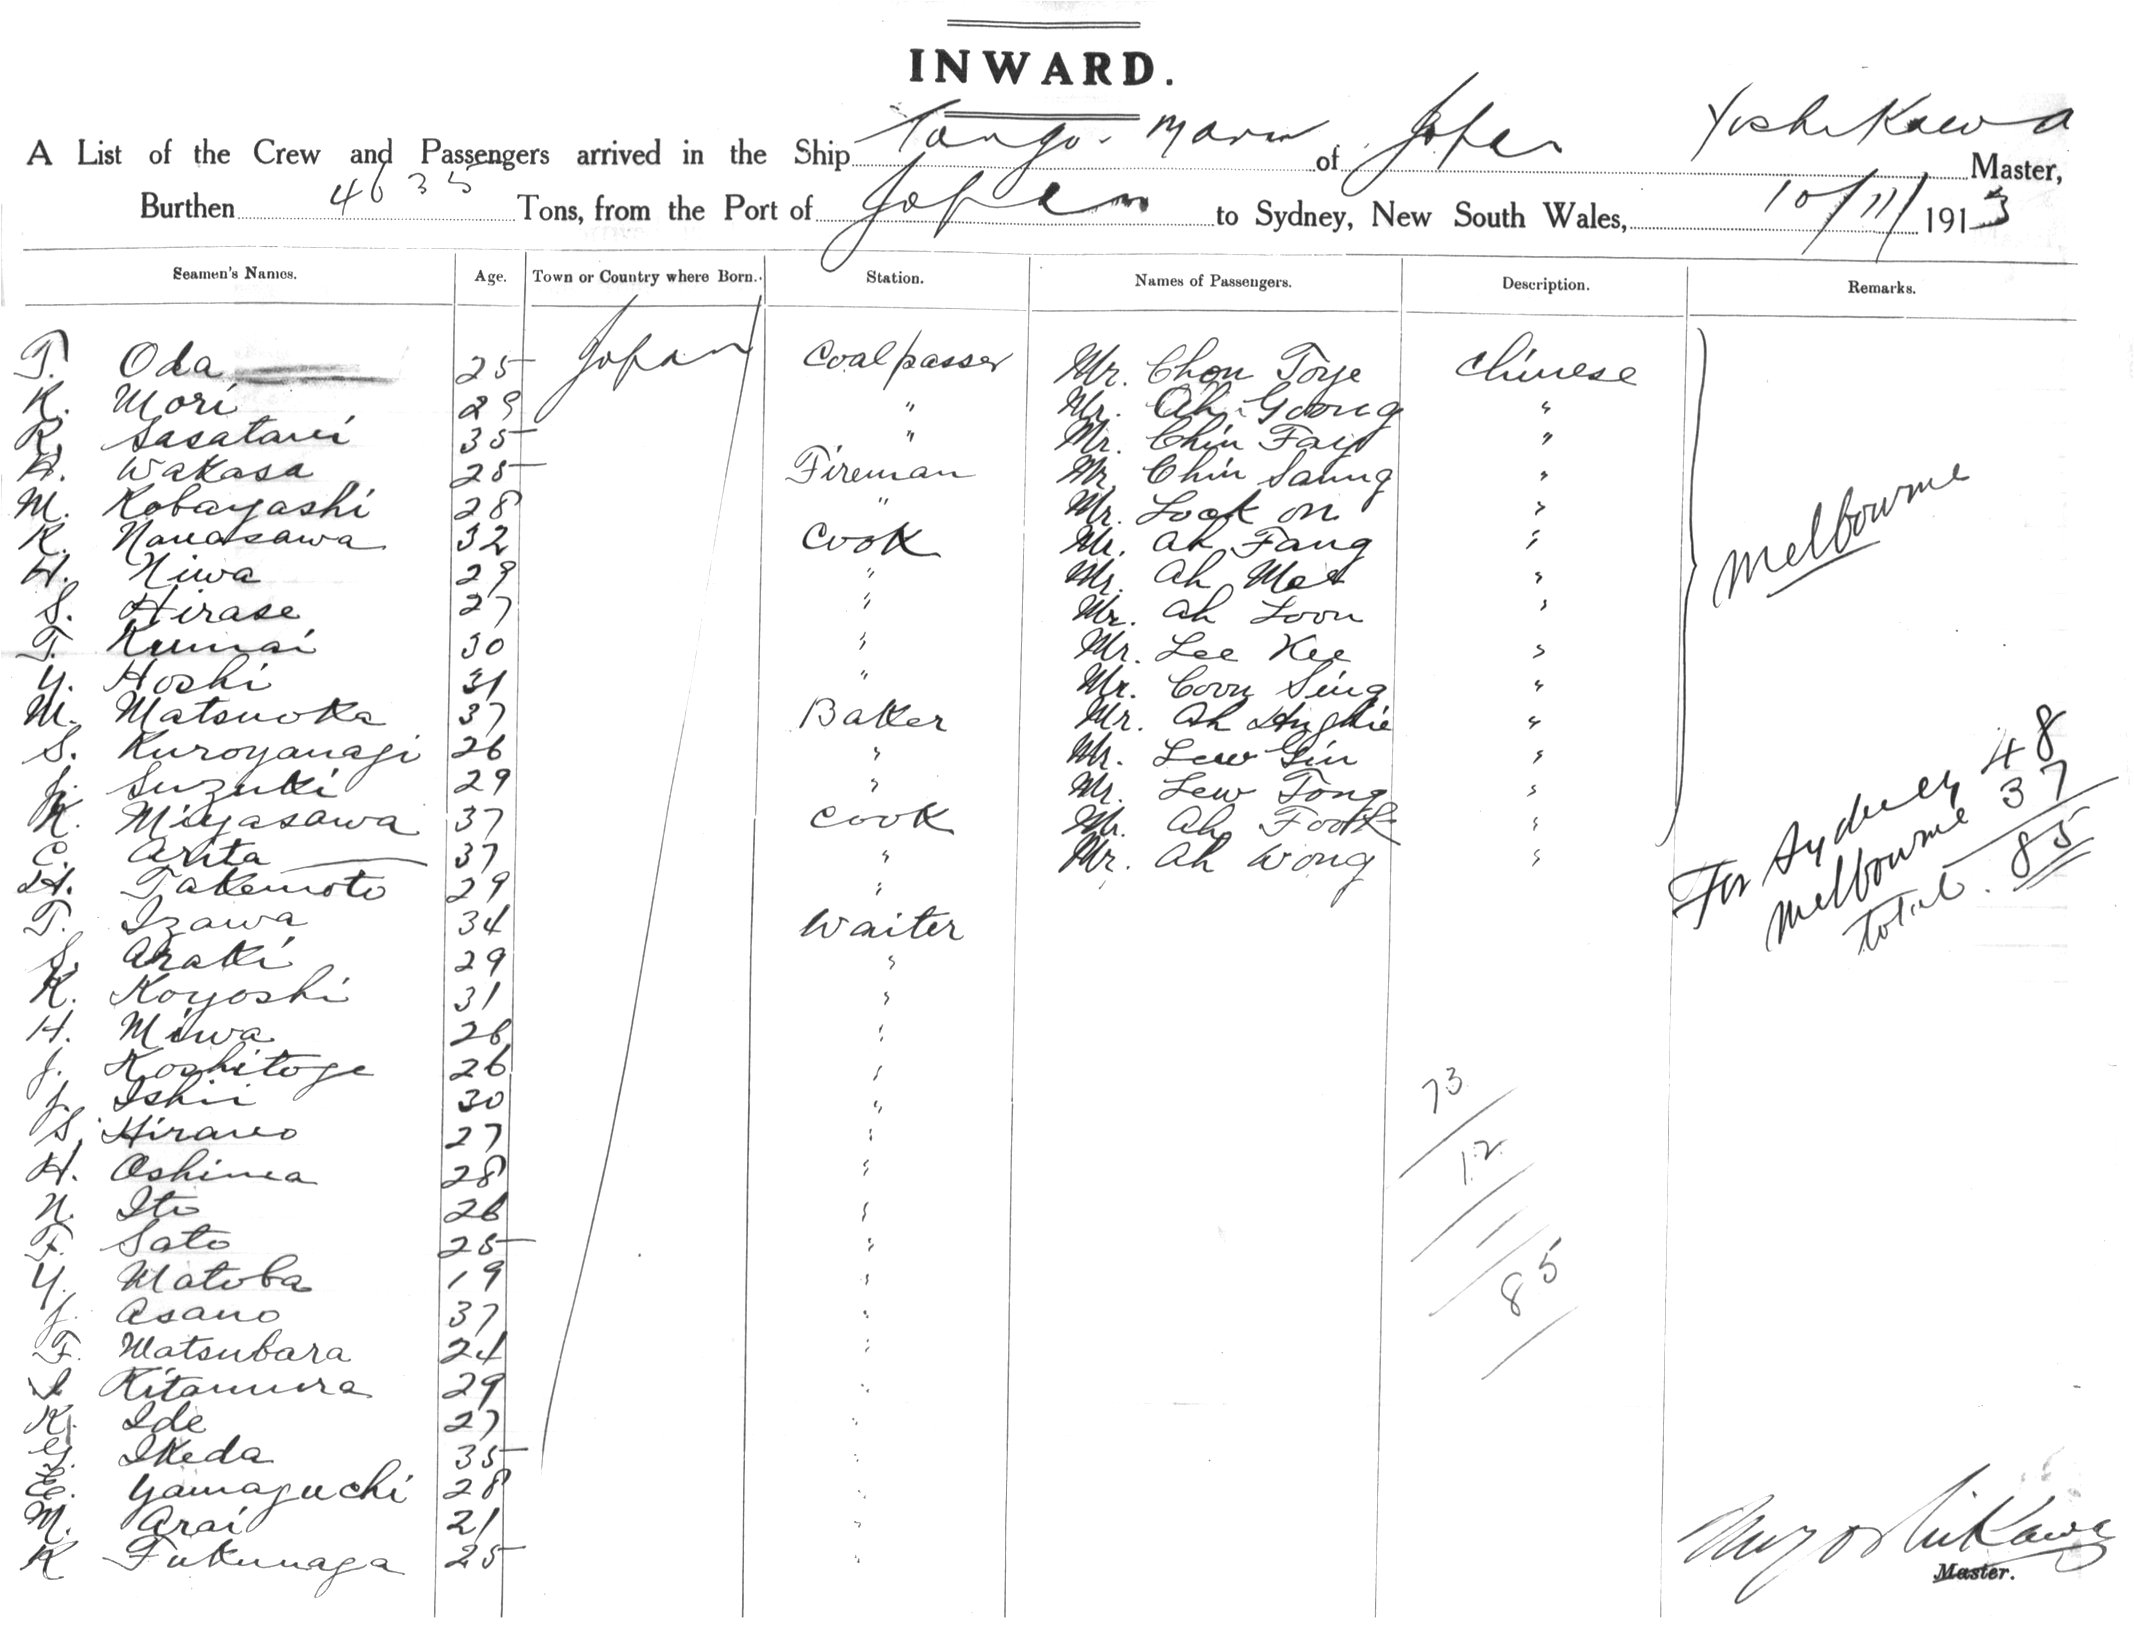 INWARD.
A List of the Crew and Passengers arrived in the Ship Tango Maru of Japan Yoshikawa Master,
Burthen 4635 Tons, from the Port of Japan to Sydney, New South Wales, 10/11/1913
Seamen's Names. Age. Town or Country where Born. Station. Names of Passengers. Description. Remarks.
T. Oda 25 Japan Coalpasser Mr. Chon Toye Chinese
K. Mori 29 " Mr. Ah Goong "
K. Sasatani 35 " Mr. Chin Fay "
H. Wakasa 25 Fireman Mr. Chin Saung "
M. Kobayashi 28 " Mr. Look on "
K. Nawasawa 32 Cook Mr. Ah Fang "
H. Niwa 29 " Mr. Ah "
S. Hirase 27 " Mr. Ah Loon "
T. Kumai 30 " Mr. Lee Kee "
Y. Hoshi 31 " Mr. Coon Sing "
M. Matsuoka 37 Baker Mr. Ah "
S. Kuroyanagi 26 " Mr. Lew Gin "
J. Suzuki 29 " Mr. Lew Tong "
K. Miyasawa 37 Cook Mr. Ah Fook "
C. Arita 37 " Mr. Ah Wong "
H. Takemoto 29 "
T. Izawa 34 Waiter
S. Araki 29 "
K. Koyoshi 31 "
H. Miwa 26 "
J. Koshitoge 26 "
J. Ishii 30 "
S. Hirano 27 "
H. Oshima 28 "
N. Ito 26 "
F. Sato 25 "
Y. Matoba 19 "
J. Asano 37 "
F. Matsubara 24 "
S Kitamura 29 "
K. Ide 27 "
G. Ikeda 35 "
E. Yamaguchi 28 "
M. Arai 21 "
K Fukunaga 25 "
Melbourne
For Sydney 48
Melbourne 37
total. 85
73
12
85
Yoshikawa
Master.